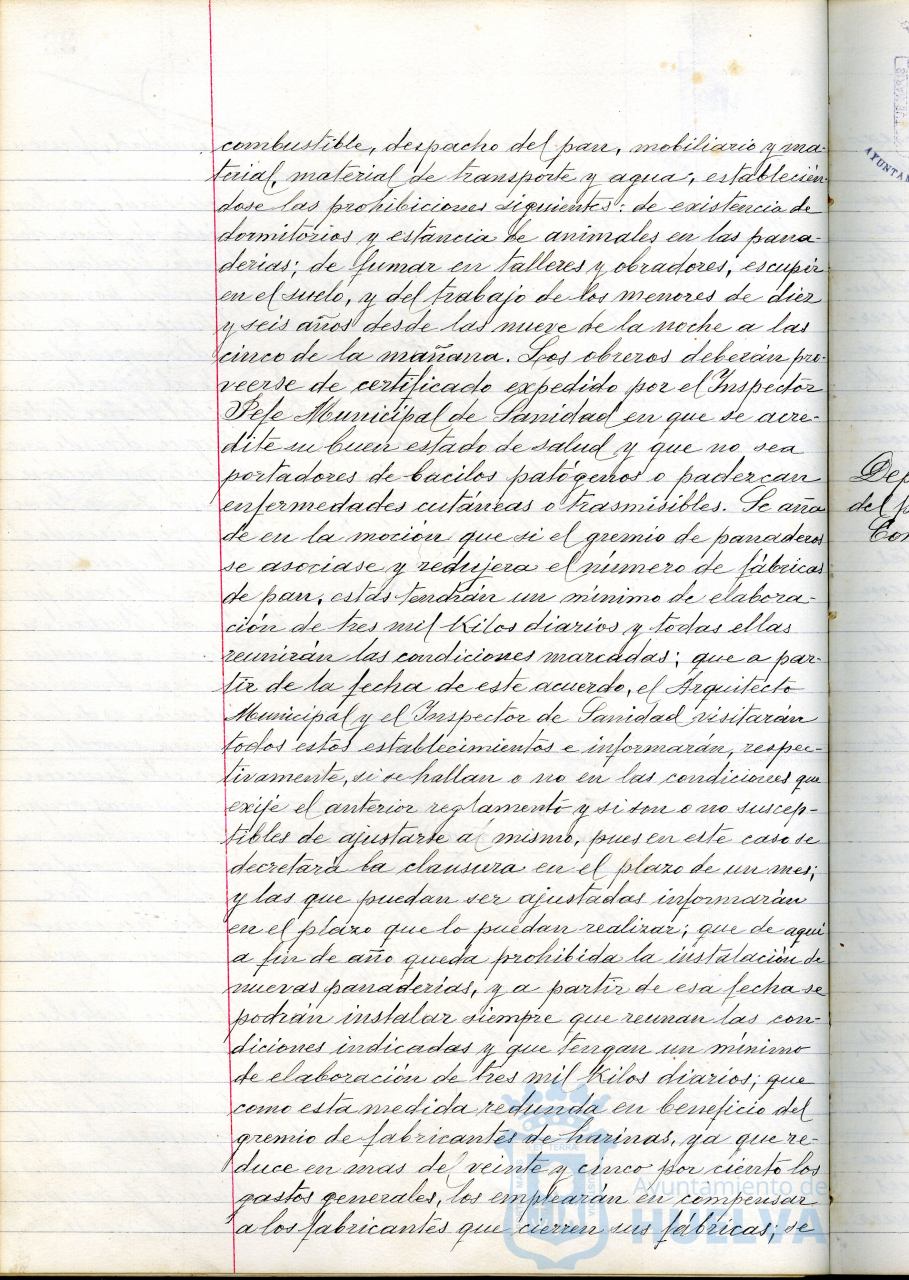 combustible, despacho del pan, mobiliario y ma-
terial, material de transporte y agua, establecién-
dose las prohibiciones siguientes: de existencia de
dormitorios y estancia de animales en las pana-
derias; de fumar en talleres y obradores, escupir
en el suelo, y del trabajo de los menores de diez
y seis años desde las nueve de la noche a las
cinco de la mañana. Los obreros deberán pro-
veerse de certificado expedido por el Inspector
Jefe Municipal de Sanidad en que se acre-
dite su buen estado de salud y que no sea
portadores de bacilos patógenos o padezcan
enfermedades cutáneas o trasmisibles. Se aña
de en la moción que si el gremio de panaderos
se asociase y redujera el número de fábricas
de pan, estas tendrán un mínimo de elabora-
ción de tres mil Kilos diarios y todas ellas
reunirán las condiciones marcadas; que a par-
tir de la fecha de este acuerdo, el Arquitecto
Municipal y el Inspector de Sanidad visitarán
todos estos establecimientos e informarán, respec-
tivamente, si se hallan o no en las condiciones que
exije el anterior reglamento y si son o no suscep-
tibles de ajustarse al mismo, pues en este caso se
decretará la clausura en el plazo de un mes;
y las que puedan ser ajustadas informarán
en el plazo que lo puedan realizar; que de aqui
a fin de año queda prohibida la instalación de
nuevas panaderias, y a partir de esa fecha se
podrán instalar siempre que reunan las con-
diciones indicadas y que tengan un mínimo
de elaboración de tres mil Kilos diarios; que
como esta medida redunda en beneficio del
gremio de fabricantes de harinas, ya que re-
duce en mas del veinte y cinco por ciento los
gastos generales, los emplearán en compensar
a los fabricantes que cierren sus fábricas; se
Dep
del p
Con
AYUNTA
Ayuntamiento de
HUELVA